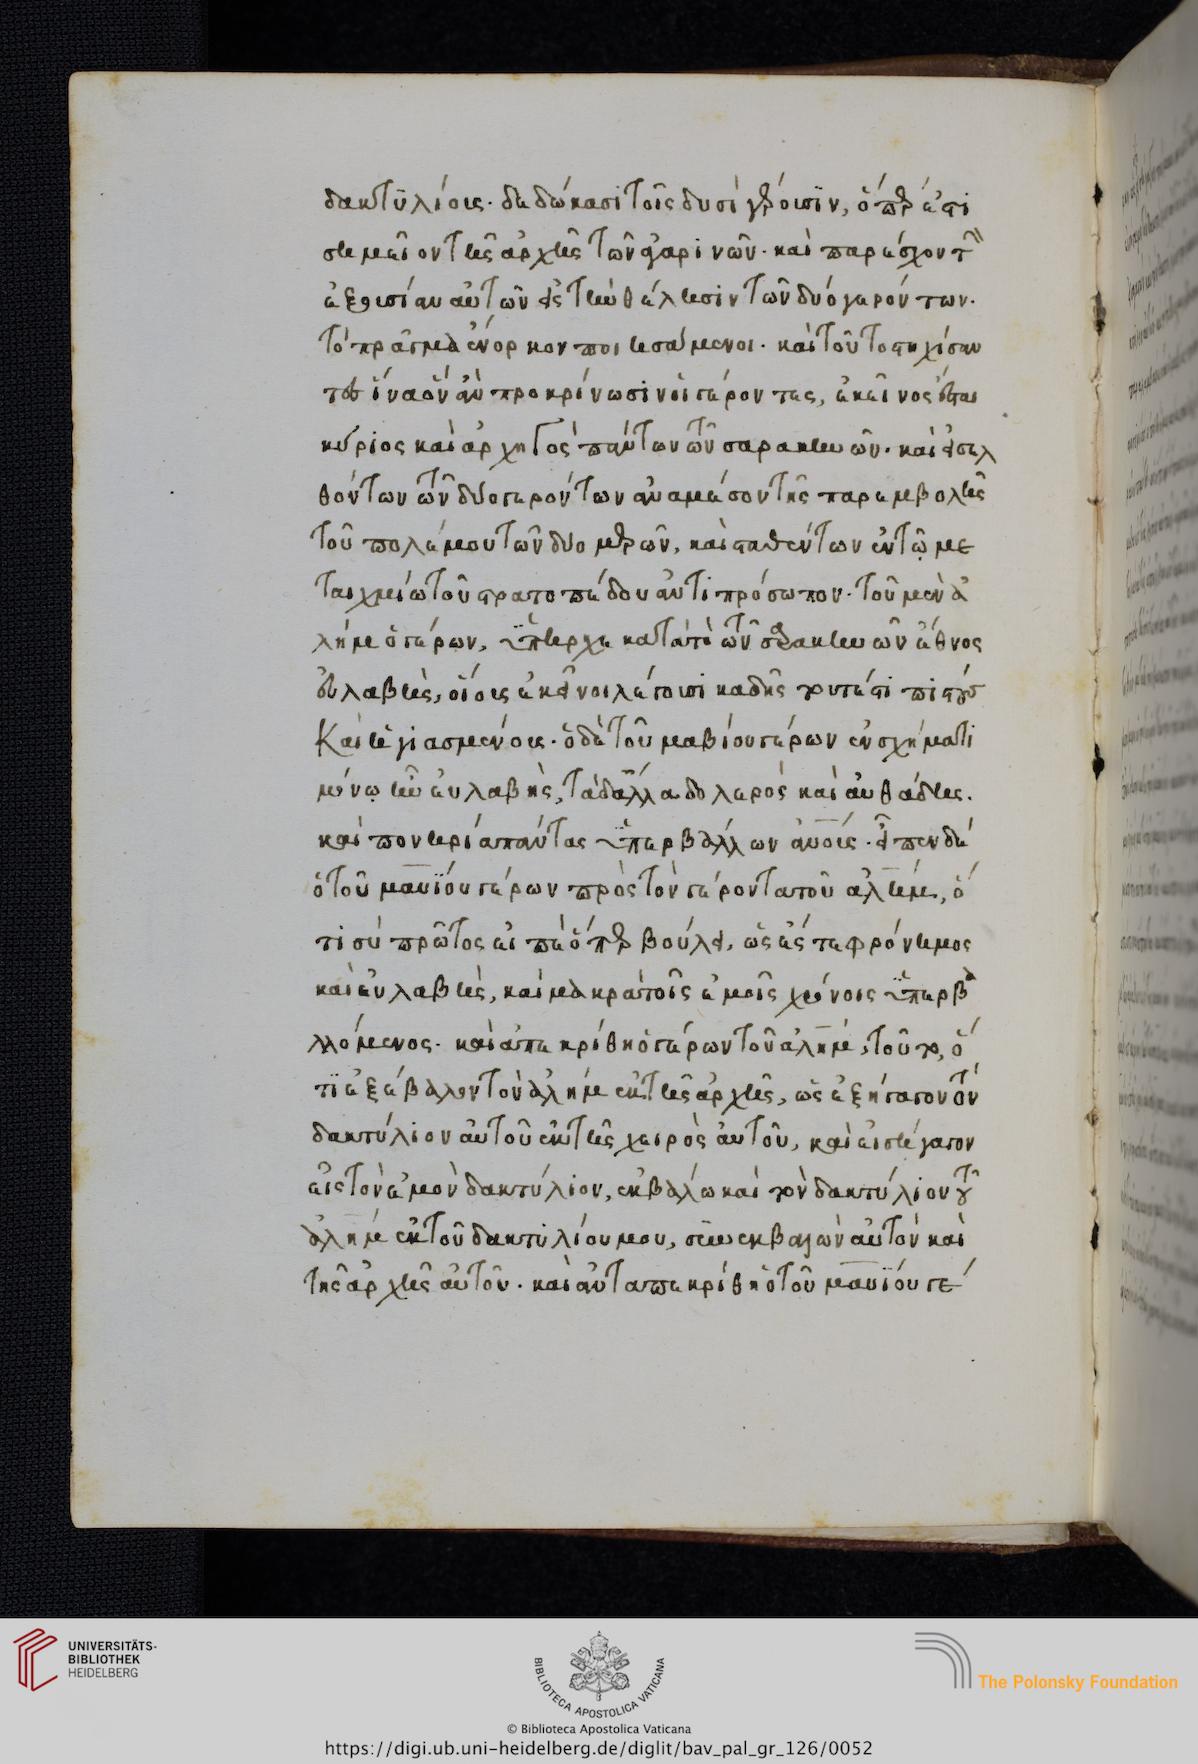 δακτϋλίοις. δεδώκασι τοῖς δυσὶ γέρουσϊν, ὅπερ ἐστὶ
σημεῖον τῆς ἀρχῆς τῶν σαρακηνῶν. καὶ παρέσχον τὴν
ἐξουσίαν αὐτῶν εἰς τὴν θέλησιν τῶν δύο γερόντων.
τὸ πρᾶγμα ἔνορκον ποιησάμενοι. καὶ τοῦ τοιχίσαν
το ἵνα ὃν ἂν προκρίνωσιν οἱ γέροντες, ἐκεῖνος ἔσται
κύριος καὶ ἀρχηγὸς πάντων τῶν σαρακηνῶν. καὶ εἰσελ
θόντων τῶν δύο γερόντων ἀναμέσον τῆς παρεμβολῆς
τοῦ πολέμου τῶν δύο μερῶν, καὶ σταθέντων ἐν τῷ με
ταιχμίω τοῦ στρατοπέδου ἀντιπρόσωπον. τοῦ μὲν ἀ
λὴμ ὁ γέρων, ϋπῆρχε κατὰ τὸ τῶν σαρακηνῶν ἔθνος
εὐλαβὴς, οἵοις ἐκεῖνοι λέγουσι καδῆς τουτέστι πιστοὺς
Καὶ ἡγιασμένοις. ὁ δὲ τοῦ μαβίου γέρων ἐν σχήματι
μόνω ἦν εὐλαβὴς, τὰ δ' ἄλλα δολερὸς καὶ αὐθάδης.
καὶ πονηρία πάντας ϋπερβάλλων αὐτοῖς. εἶπεν δὲ
ὁ τοῦ μαυϊου γέρων πρὸς τὸν γέροντα τοῦ ἀλήμ, ὅ
τι σὺ πρῶτος εἰπὲ ὅπερ βούλει, ὡς ἅτε φρόνημος
καὶ εὐλαβὴς, καὶ μακρὰ τοῖς ἐμοῖς χρόνοις ϋπερβα
λλόμενος. καὶ ἀπεκρίθη ὁ γέρων τοῦ ἀλήμ, τοῦτο, ὅ
τϊ ἐξέβαλον τὸν ἀλὴμ ἐκ τῆς ἀρχῆς, ὡς ἐξήγαγον τὸν
δακτύλιον αὐτοῦ ἐκ τῆς χειρὸς αὐτοῦ, καὶ εἰσήγαγον
εἰς τὸν ἐμὸν δακτύλιον, ἐκβάλω καὶ τὸν δακτύλιον τοῦ
ἀλὴμ ἐκ τοῦ δακτυλίου μου, συνεκβαλὼν αὐτὸν καὶ
τῆς ἀρχῆς αὐτοῦ. καὶ ἀνταπεκρίθη ὁ τοῦ μαυϊου γέ
UNIVERSITÄTS-
BIBLIOTHEK
HEIDELBERG
BIBLIOTECA APOSTOLICA VATICANA
The Polonsky Foundation
© Biblioteca Apostolica Vaticana
https://digi.ub.uni-heidelberg.de/diglit/bav_pal_gr_126/0052